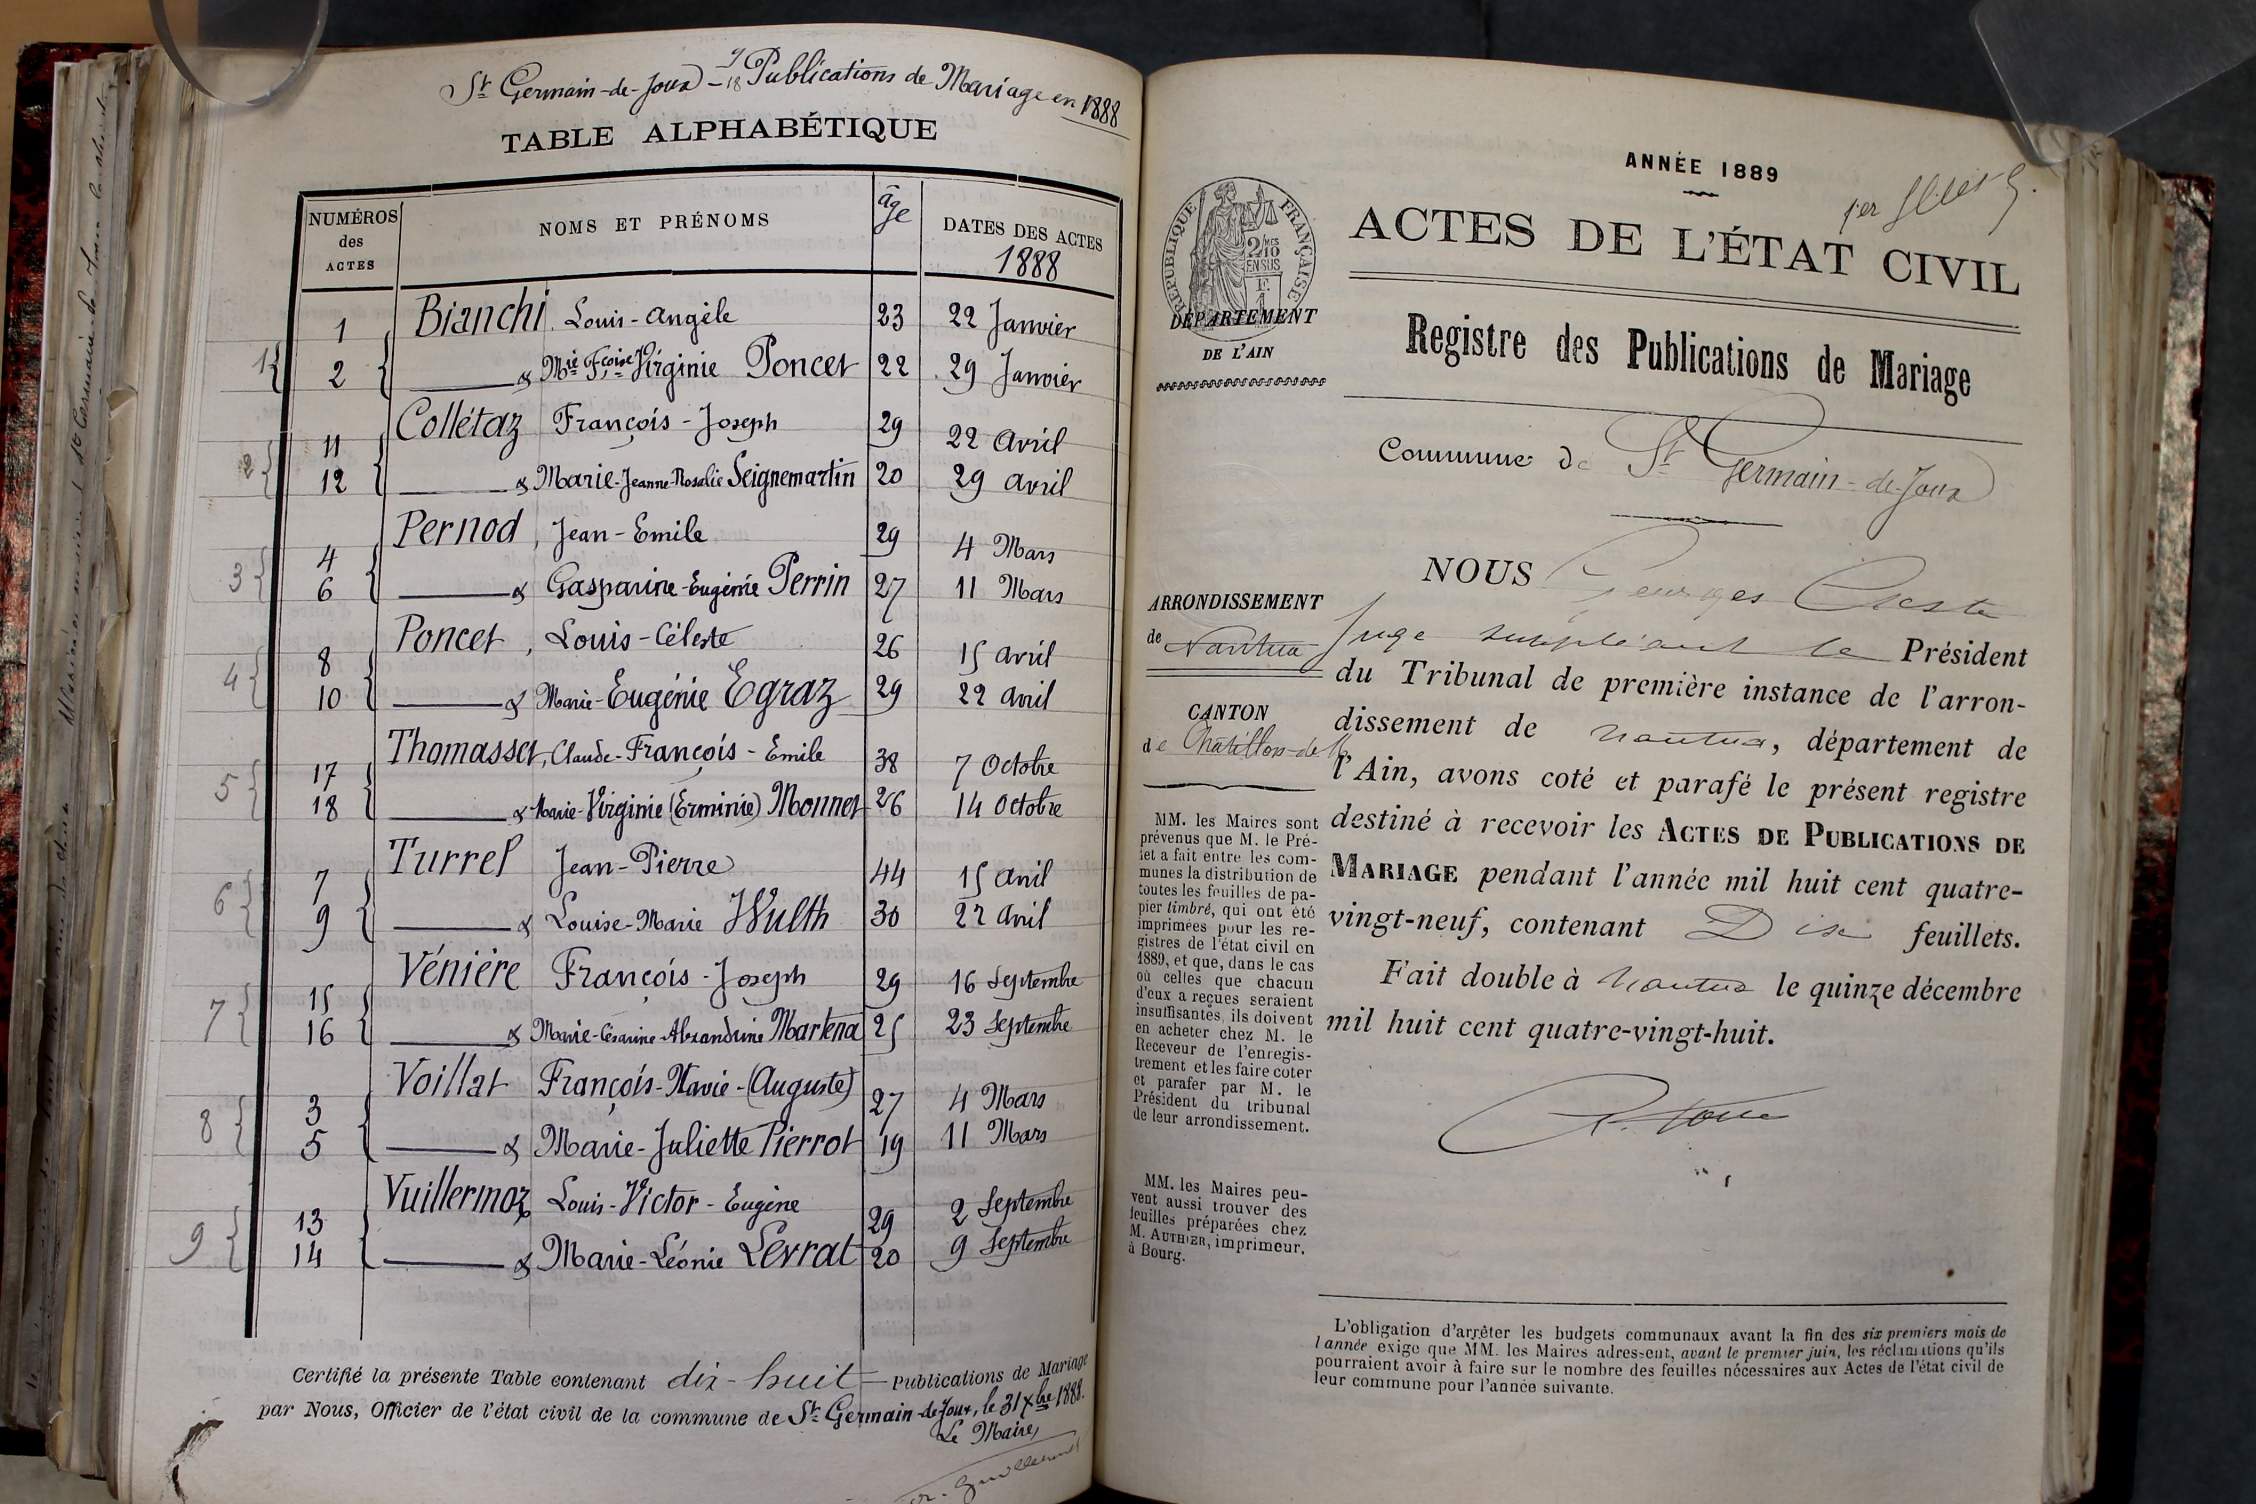 St Germain-de-Joux - 9/18 Publications de Mariage en 1888
TABLE ALPHABÉTIQUE
NUMÉROS des ACTES
NOMS ET PRÉNOMS
âge
DATES DES ACTES
1888
1 Bianchi Louis-Angèle 23 22 Janvier
1 { 2 & Mie Fçoise Virginie Poncet 22 29 Janvier
11 Collétaz François-Joseph 29 22 Avril
2 { 12 & Marie-Jeanne-Rosalie Seignemartin 20 29 Avril
4 Pernod, Jean-Emile 29 4 Mars
3 { 6 & Gasparine-Eugénie Perrin 27 11 Mars
8 Poncet, Louis-Céleste 26 15 Avril
4 { 10 & Marie-Eugénie Egraz 29 22 Avril
17 Thomasset, Claude-François-Emile 38 7 Octobre
5 { 18 & Marie-Virginie (Erminie) Monnet 26 14 Octobre
7 Turrel Jean-Pierre 44 15 Avril
6 { 9 & Louise-Marie Wulth 30 22 Avril
15 Vénière François-Joseph 29 16 Septembre
7 { 16 & Marie-Césarine-Alexandrine Martena 25 23 Septembre
3 Voillat François-Xavie-(Auguste) 27 4 Mars
8 { 5 & Marie-Juliette Pierrot 19 11 Mars
13 Vuillermoz Louis-Victor-Eugène 29 2 Septembre
9 { 14 & Marie-Léonie Levrat 20 9 Septembre
Certifié la présente Table contenant dix-huit Publications de Mariage
par Nous, Officier de l'état civil de la commune de St Germain-de-Joux, le 31 Xbre 1888.
Le Maire,
ANNÉE 1889
1er
ACTES DE L'ÉTAT CIVIL
RÉPUBLIQUE FRANÇAISE
2/10 MES EN SUS
DÉPARTEMENT
DE L'AIN
Registre des Publications de Mariage
Commune de St Germain-de-Joux
ARRONDISSEMENT
de Nantua
CANTON
de Châtillon-de-M.
MM. les Maires sont
prévenus que M. le Pré-
fet a fait entre les com-
munes la distribution de
toutes les feuilles de pa-
pier timbré, qui ont été
imprimées pour les re-
gistres de l'état civil en
1889, et que, dans le cas
où celles que chacun
d'eux a reçues seraient
insuffisantes, ils doivent
en acheter chez M. le
Receveur de l'enregis-
trement et les faire coter
et parafer par M. le
Président du tribunal
de leur arrondissement.
MM. les Maires peu-
vent aussi trouver des
feuilles préparées chez
M. AUTHIER, imprimeur,
à Bourg.
NOUS Georges
Juge suppléant le Président
du Tribunal de première instance de l'arron-
dissement de Nantua, département de
l'Ain, avons coté et parafé le présent registre
destiné à recevoir les ACTES DE PUBLICATIONS DE
MARIAGE pendant l'année mil huit cent quatre-
vingt-neuf, contenant Dix feuillets.
Fait double à Nantua le quinze décembre
mil huit cent quatre-vingt-huit.
L'obligation d'arrêter les budgets communaux avant la fin des six premiers mois de
l'année exige que MM. les Maires adressent, avant le premier juin, les réclamations qu'ils
pourraient avoir à faire sur le nombre des feuilles nécessaires aux Actes de l'état civil de
leur commune pour l'année suivante.